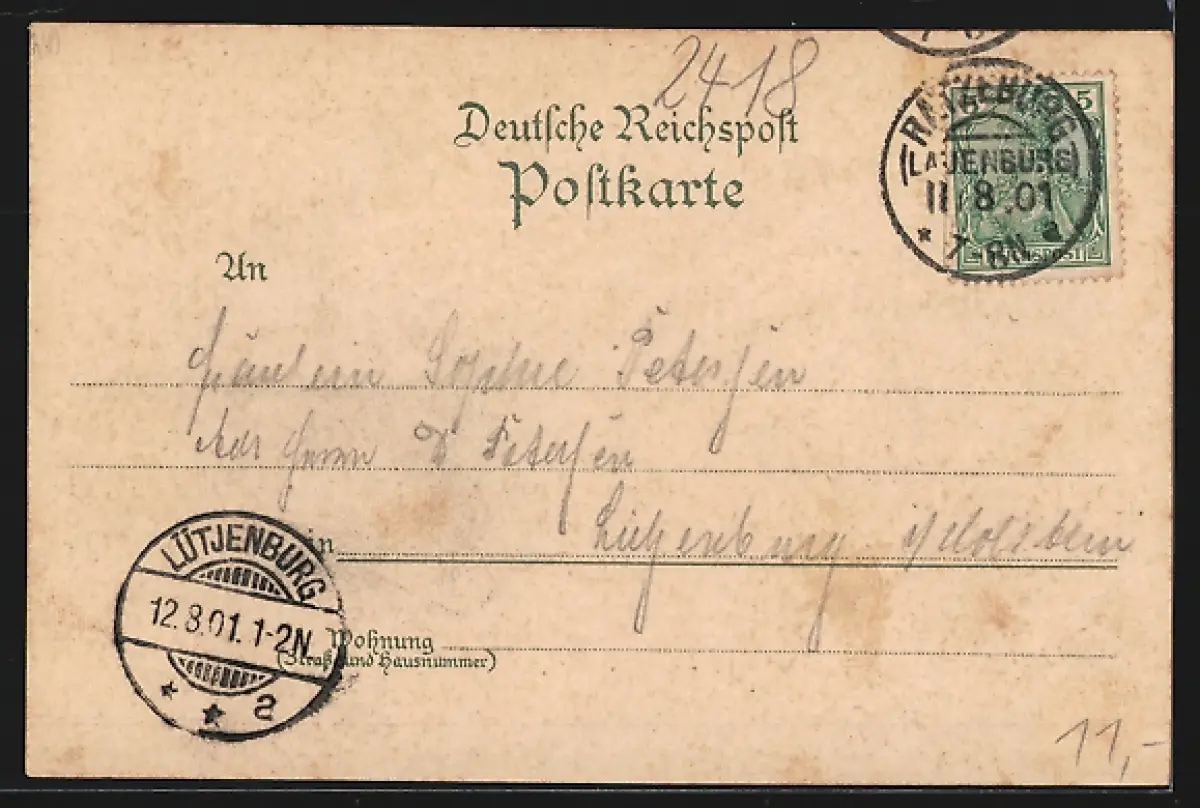 2418
Deutsche Reichspost
Postkarte
5
REICHSPOST
RATZEBURG
(LAUENBURG)
11 8 .01
* 7-8N a
An
Fräulein Sophie Petersen
Adr Herrn D Petersen
in Lütjenburg i/Holstein
LÜTJENBURG
12.8.01.1-2N.
* * a
Wohnung
(Straße und Hausnummer)
11,-